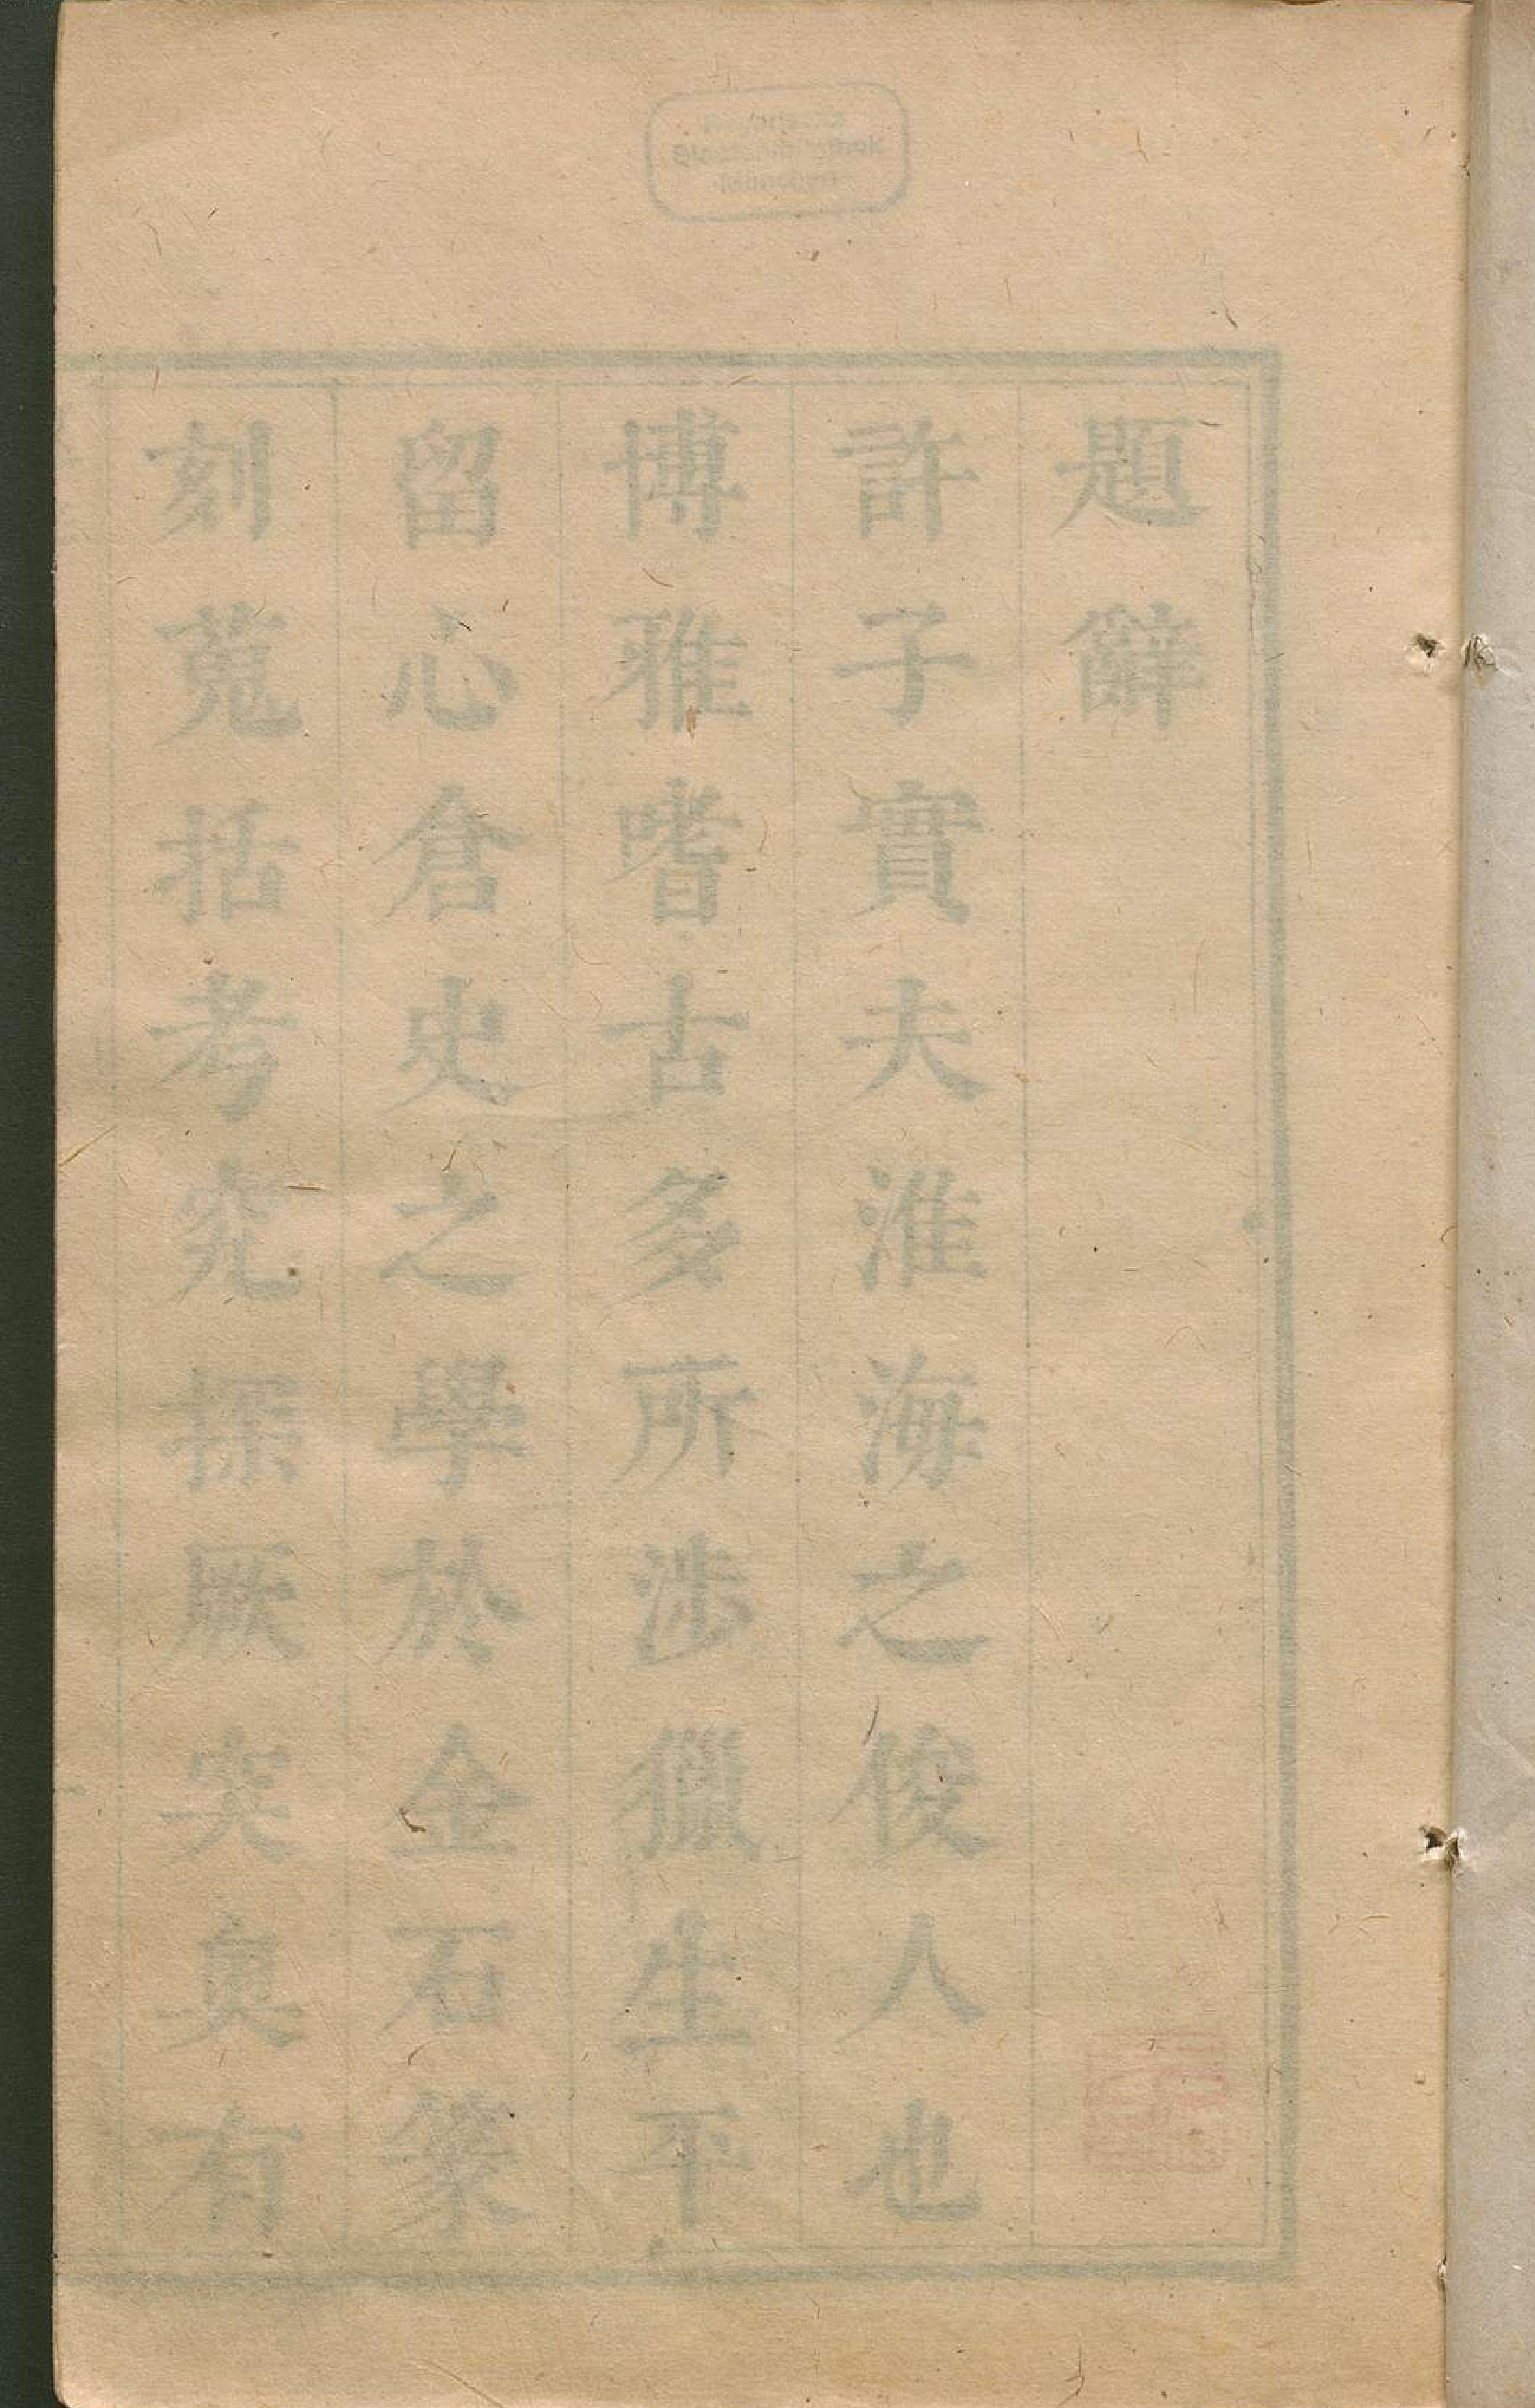 題辭
許子實夫淮海之俊人也
博雅嗜古多所涉獵生平
留心倉史之學於金石篆
刻蒐括考究探厥突奥有